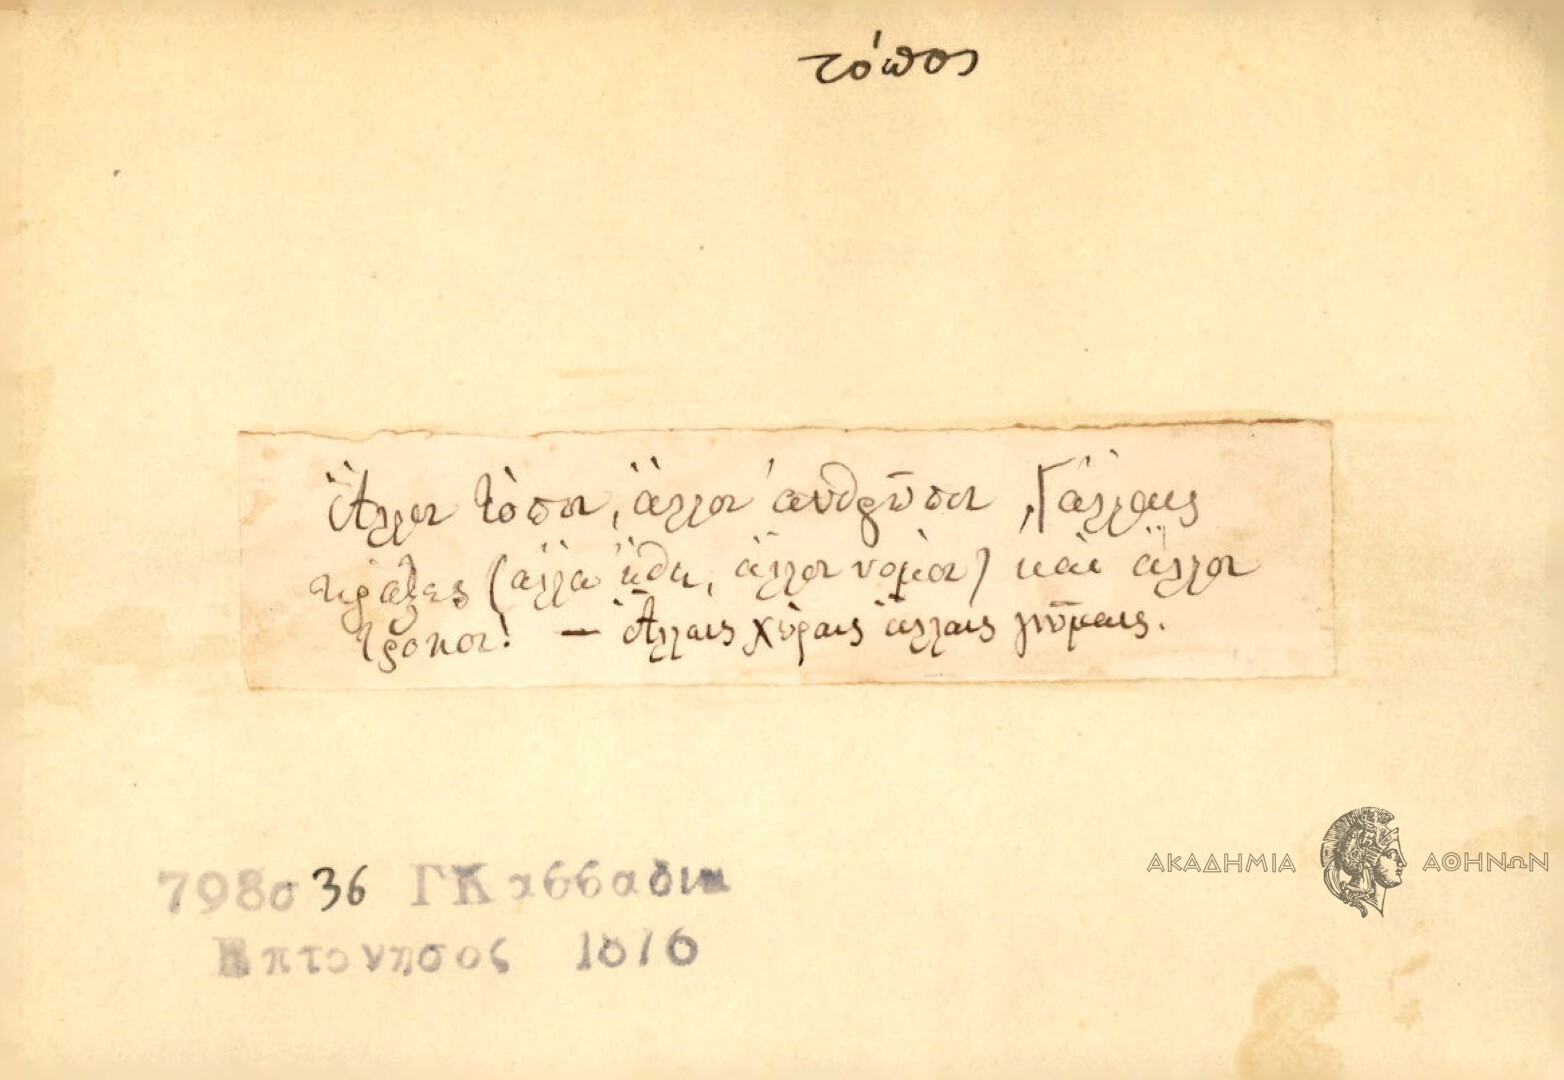 τόπος
Ἄλλοι τόποι, ἄλλοι ἀνθρῶποι, ἄλλαις
πράξες (ἄλλα ἤθη, ἄλλοι νόμοι) καὶ ἄλλοι
τρόποι! — Ἄλλαις χώραις ἄλλαις γνῶμαις.
798σ 36 ΓΚ
Επτανησος 1876
ΑΚΑΔΗΜΙΑ ΑΘΗΝΩΝ